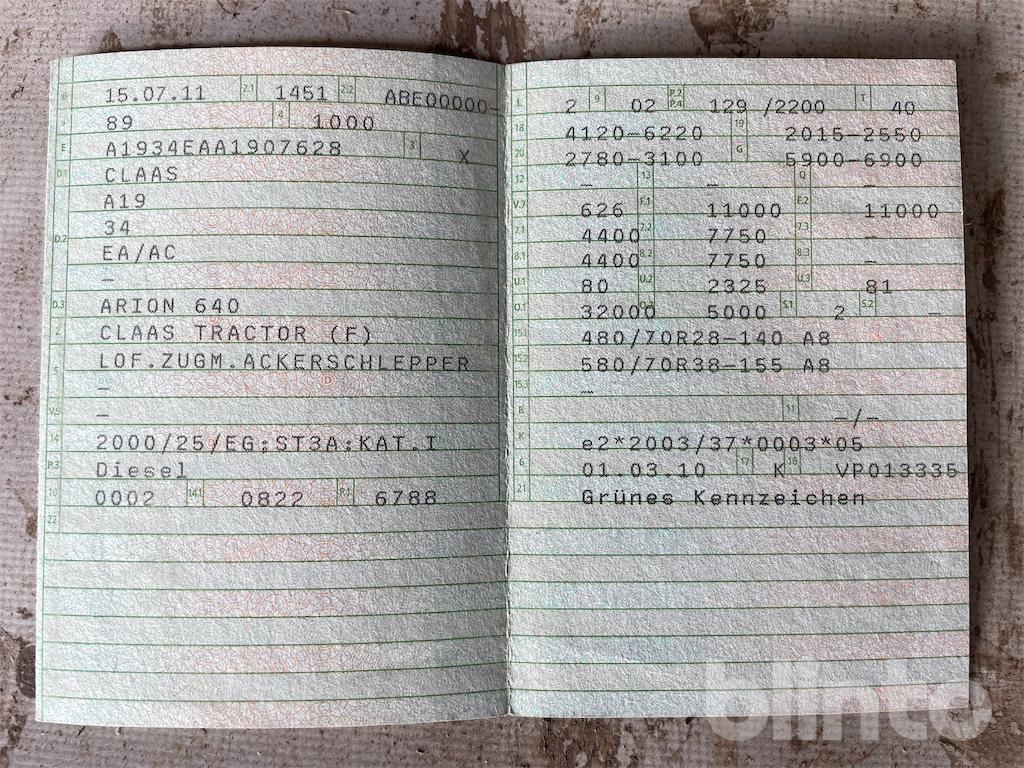 B 15.07.11 2.1 1451 2.2 ABE00000-
J 89 4 1000
E A1934EAA1907628 3 X
D.1 CLAAS
A19
D.2 34
EA/AC
—
D.3 ARION 640
2 CLAAS TRACTOR (F)
5 LOF.ZUGM.ACKERSCHLEPPER
—
V.9 —
14 2000/25/EG;ST3A:KAT.I
P.3 Diesel
10 0002 14.1 0822 P.1 6788
22
L 2 9 02 P.2 P.4 129 /2200 T 40
18 4120-6220 19 2015-2550
20 2780-3100 G 5900-6900
12 — 13 — Q —
V.7 626 F.1 11000 F.2 11000
7.1 4400 7.2 7750 7.3 —
8.1 4400 8.2 7750 8.3 —
U.1 80 U.2 2325 U.3 81
O.1 32000 O.2 5000 S.1 2 S.2 —
15.1 480/70R28-140 A8
15.2 580/70R38-155 A8
15.3 —
R 11 —/—
K e2*2003/37*0003*05
6 01.03.10 17 K 16 VP013335
21 Grünes Kennzeichen
blinto